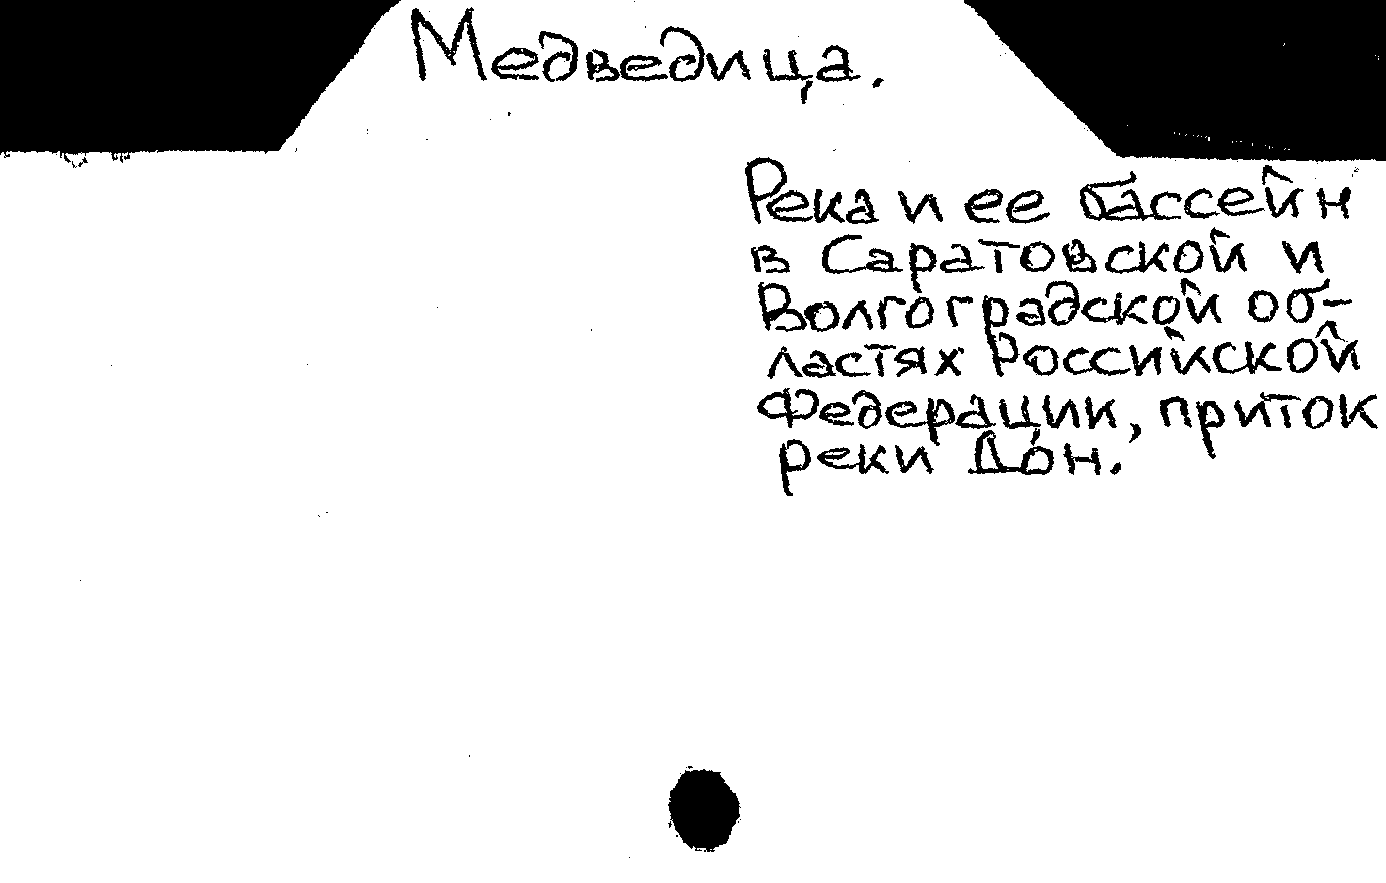 Медведица.
Река и ее бассейн
в Саратовской и
Волгоградской об-
ластях Российской
Федерации, приток
реки Дон.